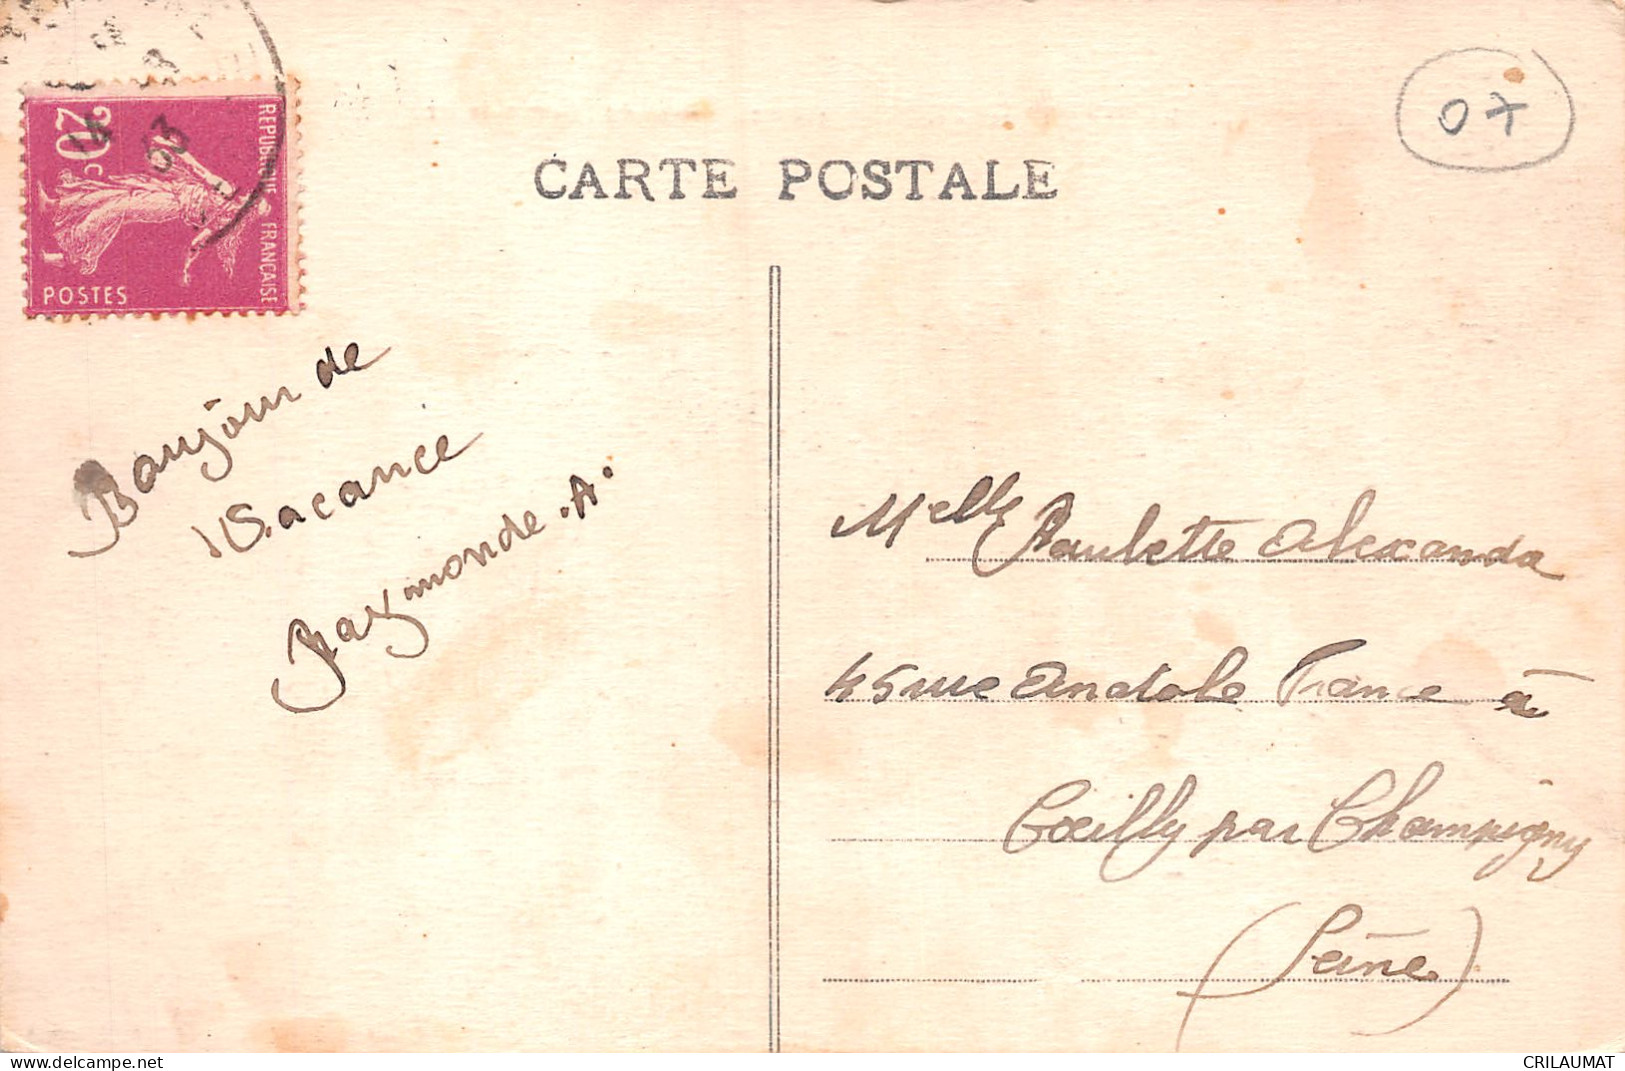 REPUBLIQUE FRANCAISE
20c
POSTES
07
CARTE POSTALE
Bonjour de
Vacance
Raymonde.A.
Melle Paulette Alexanda
45 rue Anatole France à
Coeilly par Champigny
(Seine)
www.delcampe.net
CRILAUMAT